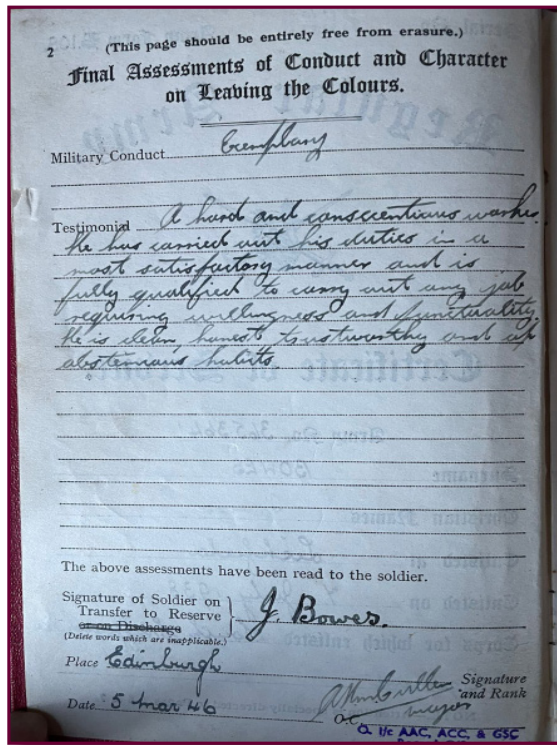 2
(This page should be entirely free from erasure.)
Final Assessments of Conduct and Character
on Leaving the Colours.
Military Conduct Exemplary
Testimonial A hard and conscientious worker.
He has carried out his duties in a
most satisfactory manner and is
fully qualified to carry out any job
requiring willingness and punctuality.
He is clean, honest, trustworthy and of
abstemious habits.
The above assessments have been read to the soldier.
Signature of Soldier on
Transfer to Reserve
or on Discharge
(Delete words which are inapplicable.)
J. Bowes.
Place Edinburgh
Signature
and Rank
Major
Date 5 Mar 46
O. i/c AAC, ACC, & GSC